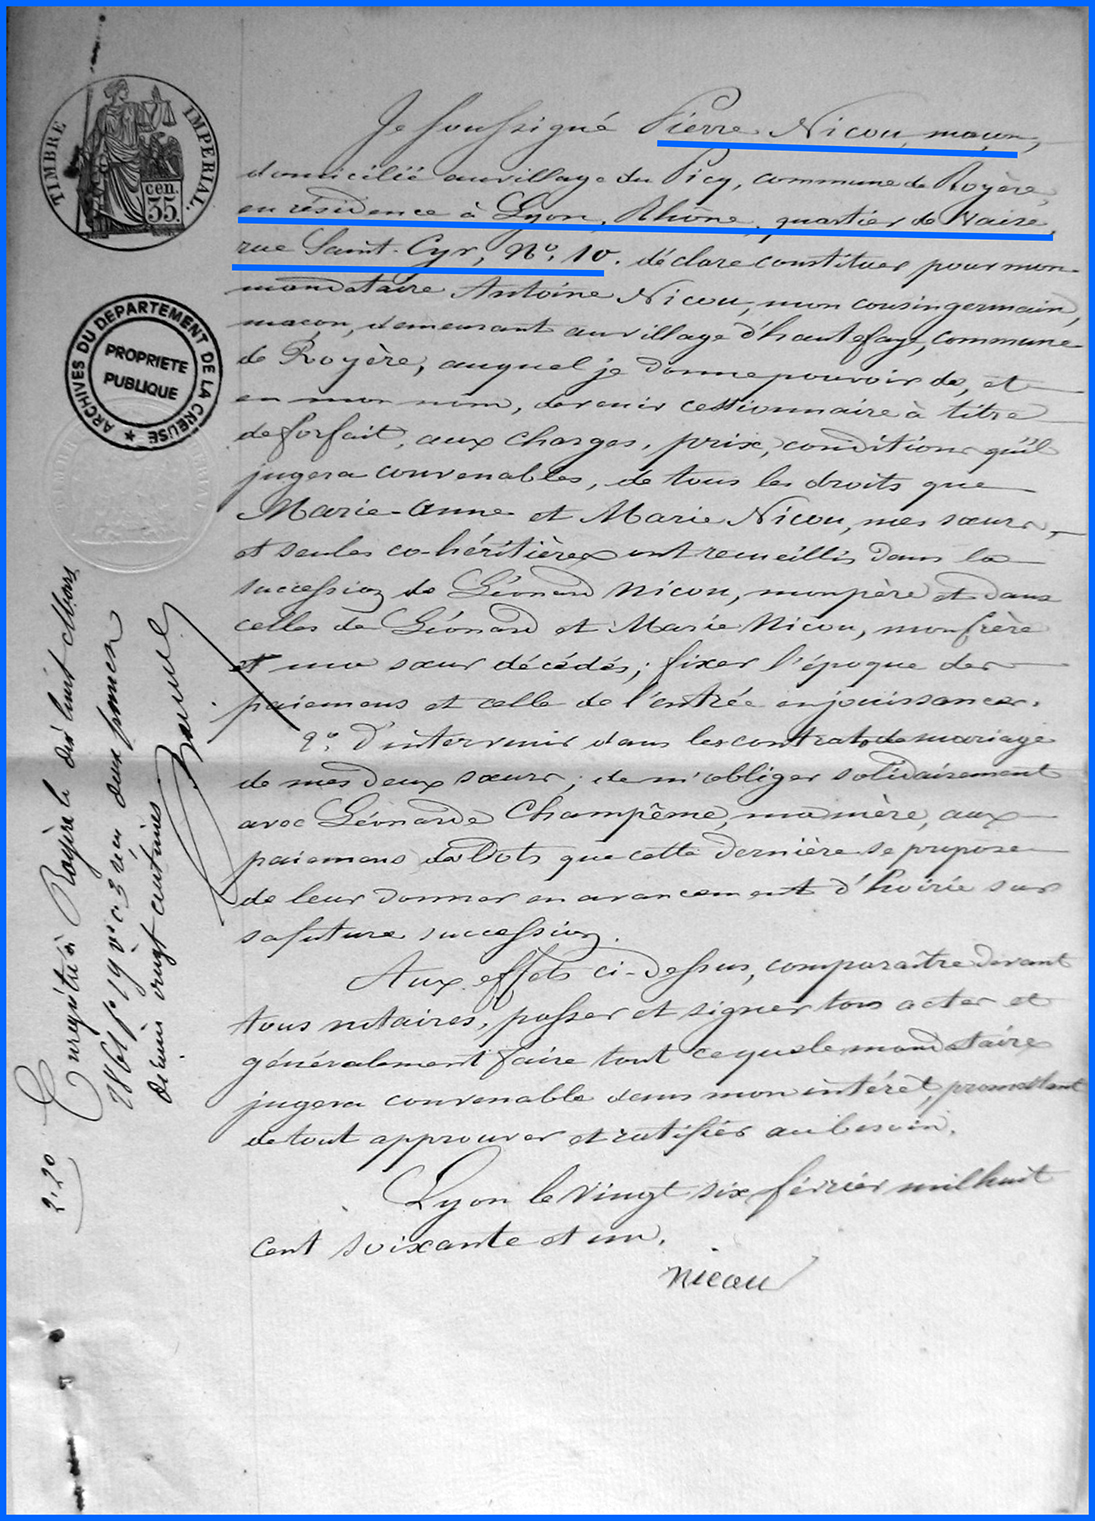 TIMBRE IMPERIAL.
cen.
35.
ARCHIVES DU DEPARTEMENT DE LA CREUSE
PROPRIETE
PUBLIQUE
Je soussigné Pierre Nicou, maçon,
domicilié au village du Picq, commune de Royère,
en résidence à Lyon, Rhône, quartier de Vaise,
rue Saint-Cyr, No. 10. déclare constituer pour mon
mandataire Antoine Nicou, mon cousin germain,
maçon, demeurant au village d'hautefaye, commune
de Royère, auquel je donne pouvoir de, et
en mon nom, devenir cessionnaire à titre
de forfait, aux charges, prix, conditions qu'il
jugera convenables, de tous les droits que
Marie-Anne et Marie Nicou, mes sœurs,
et seules co-héritières ont recueillis dans la
succession de Léonard Nicou, mon père et dans
celles de Léonard et Marie Nicou, mon frère
et ma sœur décédés; fixer l'époque des
paiemens et celle de l'entrée en jouissance.
2o. D'intervenir dans les contrats de mariage
de mes deux sœurs; de m'obliger solidairement
avec Léonarde Champême, ma mère, aux
paiemens de Dots que cette dernière se propose
de leur donner en avancement d'hoirie sur
sa future succession.
Aux effets ci-dessus, comparaître devant
tous notaires, passer et signer tous actes et
généralement faire tout ce que le mandataire
jugera convenable dans mon intérêt, promettant
de tout approuver et ratifier au besoin.
Lyon le vingt six février mil huit
cent soixante et un.
nicou
Enregistré à Royère le dix huit Mars
1861 fo 19 vo c. 3 reçu deux francs
décime vingt centimes
2.20